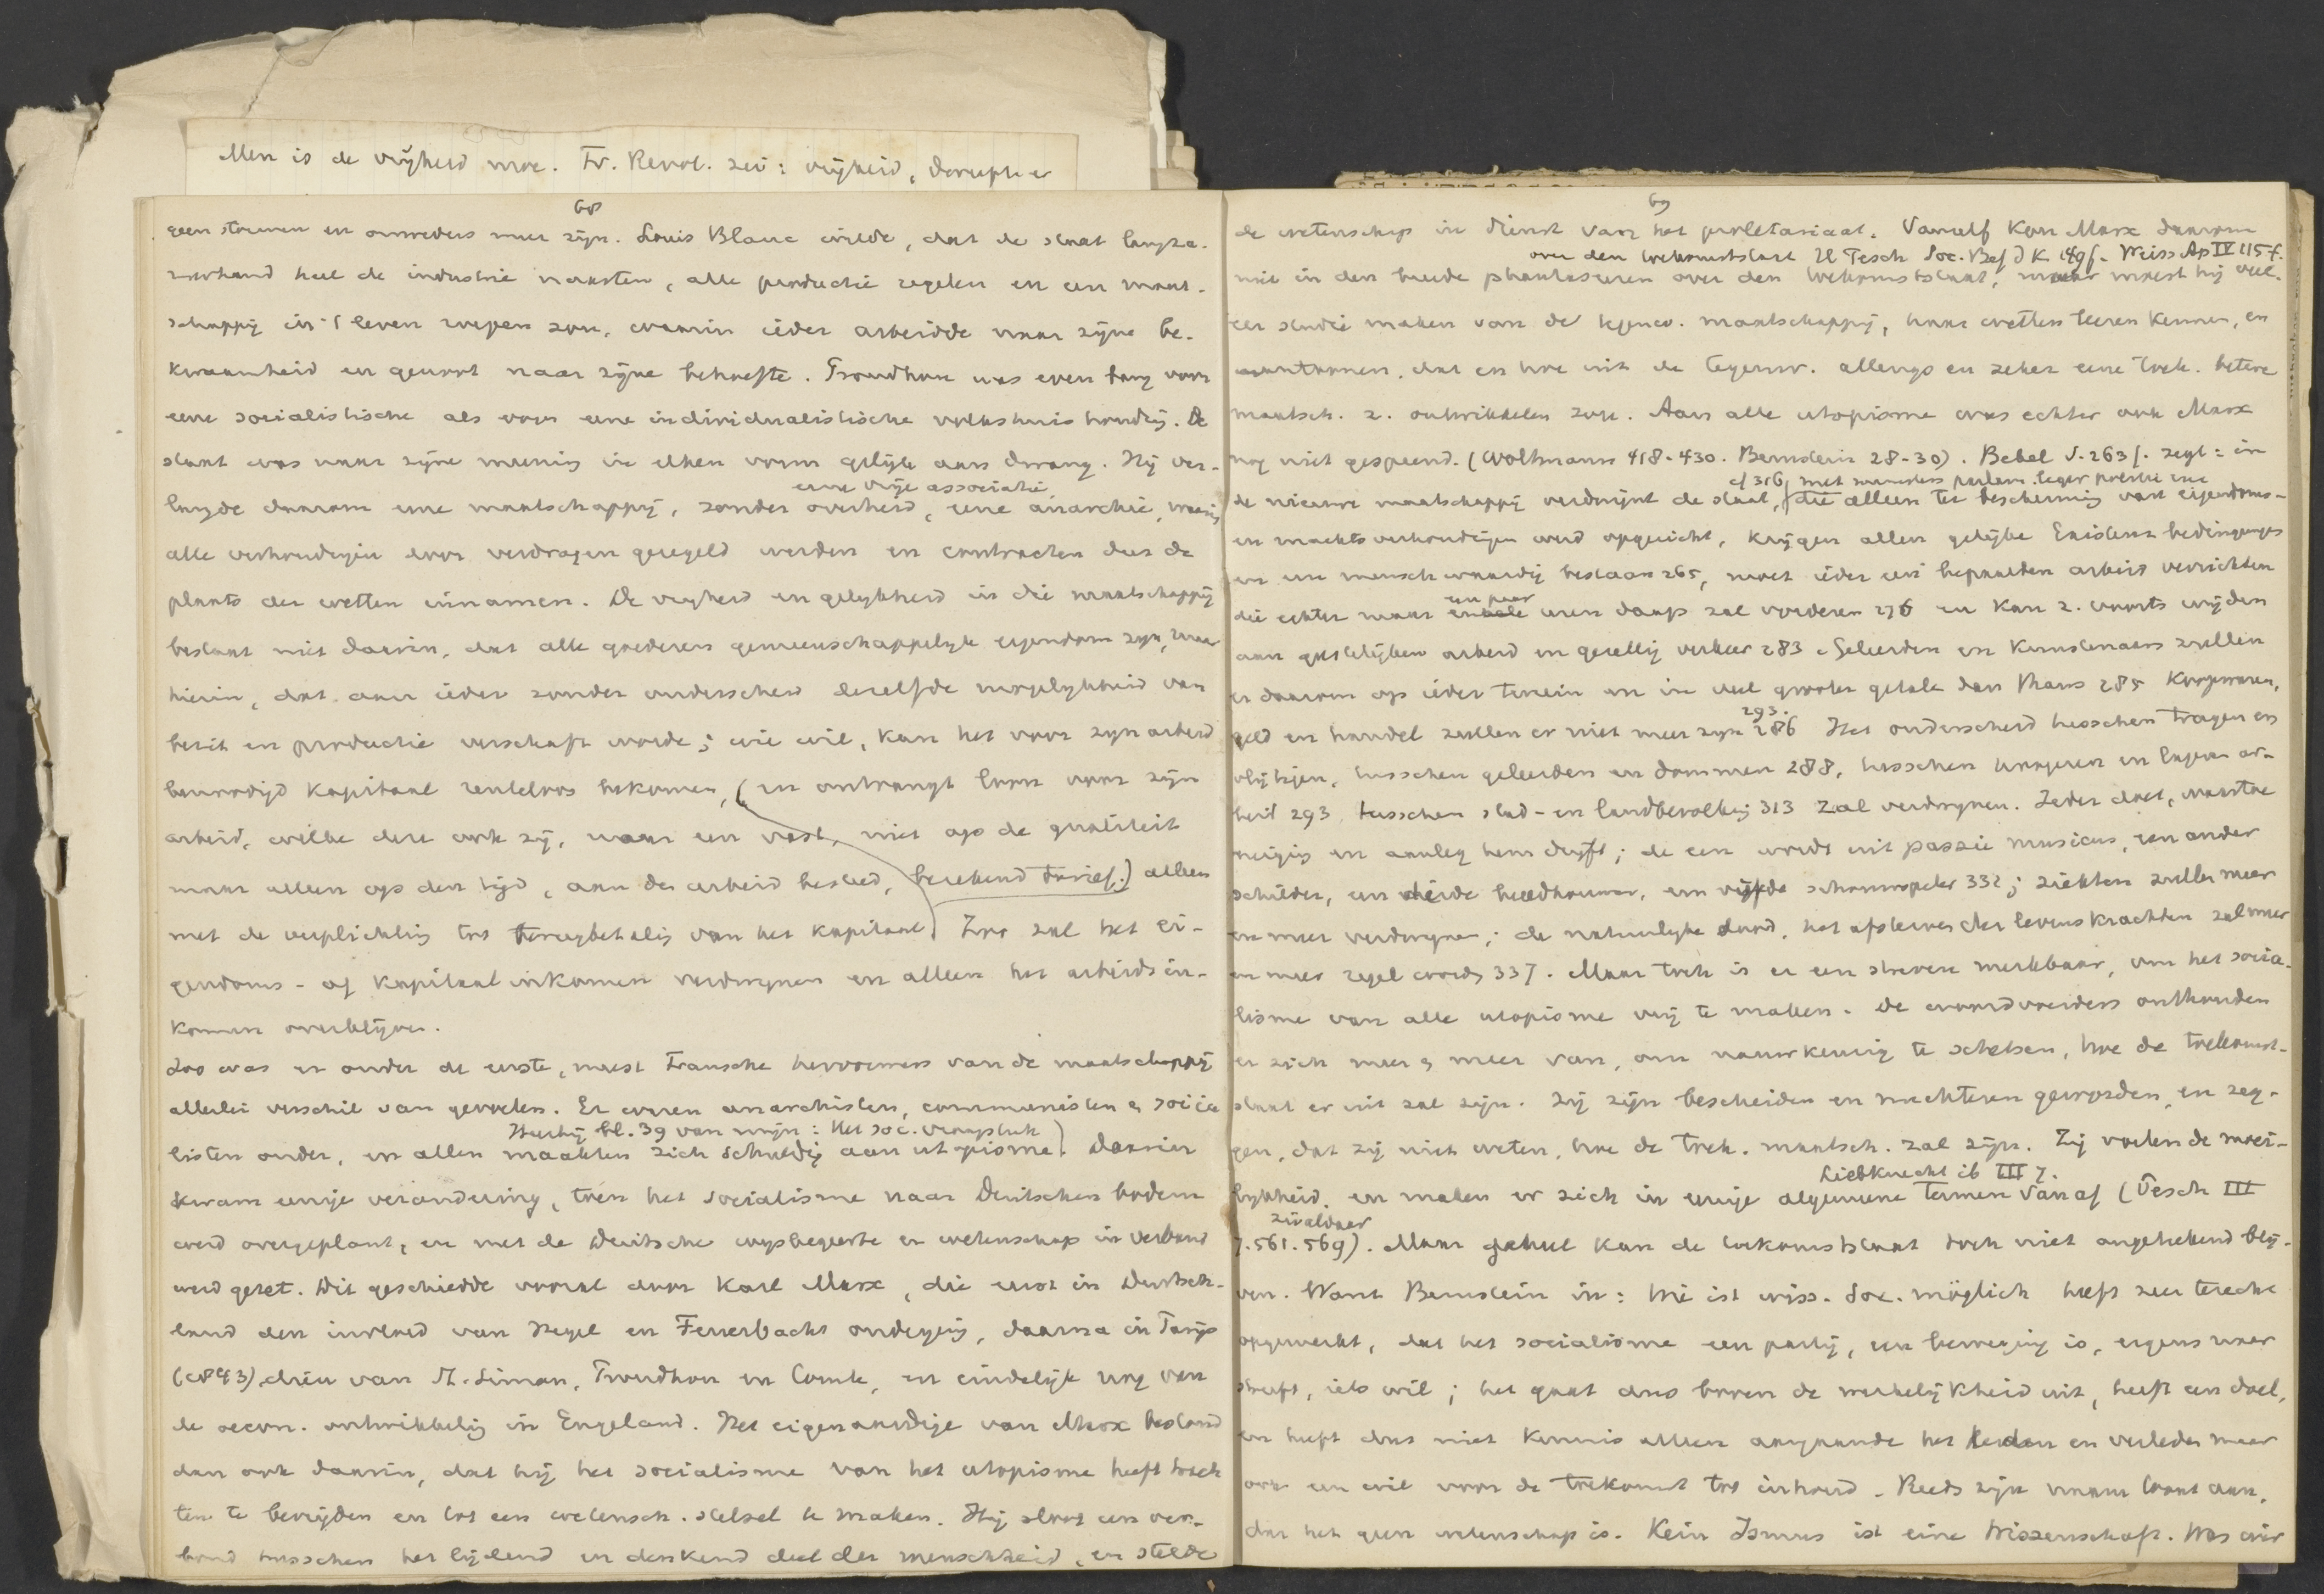 Men is de vrijheid moe. Fr. Revol. zei: vrijheid, daruplu er
68
geen stormen en onweders meer zijn. Louis Blanc wilde, dat de staat langza-
merhand heel de industrie naasten, alle productie regelen en een maat-
schappij in 't leven roepen zou, waarin ieder arbeidde naar zijne be-
kwaamheid en genoot naar zijne behoefte. Proudhon was even bang voor
eene socialistische als voor eene individualistische volkshuishoudig. De
staat was naar zijne meenig in elken vorm gelijk aan dwang. Hij ver-
eene vrije associatie
langde daarom eene maatschappij, zonder overheid, eene anarchie, waarin
alle verhoudingen door verdragen geregeld werden en contracten dus de
plaats der wetten innamen. De vrijheid en gelijkheid in die maatschappij
bestaat niet daarin, dat alle goederen gemeenschappelijk eigendom zijn, maar
hierin, dat aan ieder zonder onderscheid dezelfde mogelijkheid van
bezit en productie verschaft worde; wie wil, kan het voor zijn arbeid
benoodigd kapitaal renteloos bekomen, (en ontvangt loon voor zijn
arbeid, welke deze ook zij, naar een vast, niet op de qualiteit
maar alleen op den tijd, aan den arbeid besteed, berekend tarief.) alleen
met de verplichtig tot terugbetalig van het kapitaal. Zoo zal het ei-
gendoms- of kapitaalinkomen verdwijnen en alleen het arbeidsin-
komen overblijven.
Zoo was er onder de eerste, meest Fransche hervormers van de maatschappij
allerlei verschil van gevoelen. Er waren anarchisten, communisten & socia
Hierbij bl. 39 van mijn: Het soc. vraagstuk
listen onder, en allen maakten zich schuldig aan utopisme. Daarin
kwam eenige verandering, toen het socialisme naar Duitschen bodem
werd overgeplant, en met de Duitsche wijsbegeerte en wetenschap in verband
werd gezet. Dit geschiedde vooral door Karl Marx, die eerst in Duitsch-
land den invloed van Hegel en Feuerbach onderging, daarna in Parijs
(1843) dien van St. Simon, Proudhon en Comte, en eindelijk nog van
de oecon. ontwikkelig in Engeland. Het eigenaardige van Marx bestond
dan ook daarin, dat hij het socialisme van het utopisme heeft trach
ten te bevrijden en tot een wetensch. stelsel te maken. Hij sloot een ver-
bond tusschen het lijdend en denkend deel der menschheid, en stelde
69
de wetenschap in dienst van het proletariaat. Vanzelf kon Marx daarom
over den toekomststaat Tesch Soc. Weiss Ap IV 115 f.
niet in den breede phantaseeren over den toekomststaat, maar moest hij veel-
eer studie maken van de tegenw. maatschappij, haar wetten leeren kennen, en
aantoonen, dat en hoe uit de tegenw. allengs en zeker eene toek. betere
maatsch. z. ontwikkelen zou. Aan alle utopisme was echter ook Marx
nog niet gespeend. (Woltmann 418-430. Bernstein 28-30). Bebel S. 263 f. zegt: in
cf 316, met ministers parlem. leger politie enz
de nieuwe maatschappij verdwijnt de staat, die alleen ter bescherming van eigendoms-
en machtsverhoudigen werd opgericht, krijgen allen gelijke Existenzbedingungen
en een menschwaardig bestaan 265, moet ieder een bepaalden arbeid verrichten
een paar
die echter maar enkele uren daags zal vorderen 276 en kan z. voorts wijden
aan geestelijken arbeid en gezellig verkeer 283. Geleerden en Kunstenaars zullen
er daarom op ieder terrein en in veel grooter getale dan thans 285 Koopwaren,
293.
geld en handel zullen er niet meer zijn 286 Het onderscheid tusschen tragen en
vlijtigen, tusschen geleerden en dommen 288, tusschen hoogeren en lageren ar-
beid 293, tusschen stad- en landbevolking 313 zal verdwijnen. Ieder doet, waartoe
neigig en aanleg hem drijft; de een wordt uit passie musicus, een ander
schilder, een derde beeldhouwer, een vijfde schouwspeler 332; ziekten zullen meer
en meer verdwijnen; de natuurlijke dood, het afsterven der levenskrachten zal meer
en meer regel worden 337. Maar toch is er een streven merkbaar, om het socia-
lisme van alle utopisme vrij te maken. De woordvoerders onthouden
er zich meer & meer van, om nauwkeurig te schetsen, hoe de toekomst-
staat er uit zal zijn. Zij zijn bescheiden en nuchteren geworden, en zeg-
gen, dat zij niet weten, hoe de toek. maatsch. zal zijn. Zij voelen de moei-
Liebknecht ib III 7.
lijkheid, en maken er zich in eenige algemeene termen van af (Tesch III
7. 561. 569). Maar geheel kan de toekomststaat toch niet ongeteekend blij-
ven. Want Bernstein in: Wie ist wiss. Soc. möglich heeft zeer terecht
opgemerkt, dat het socialisme een partij, een beweging is, ergens naar
streeft, iets wil; het gaat dus boven de werkelijkheid uit, heeft een doel,
en heeft dus niet kennis alleen aangaande het heden en verleden maar
ook een wil voor de toekomst tot inhoud. Reeds zijn naam toont aan,
dat het geen wetenschap is. Kein Ismus ist eine Wissenschaft. Was wir